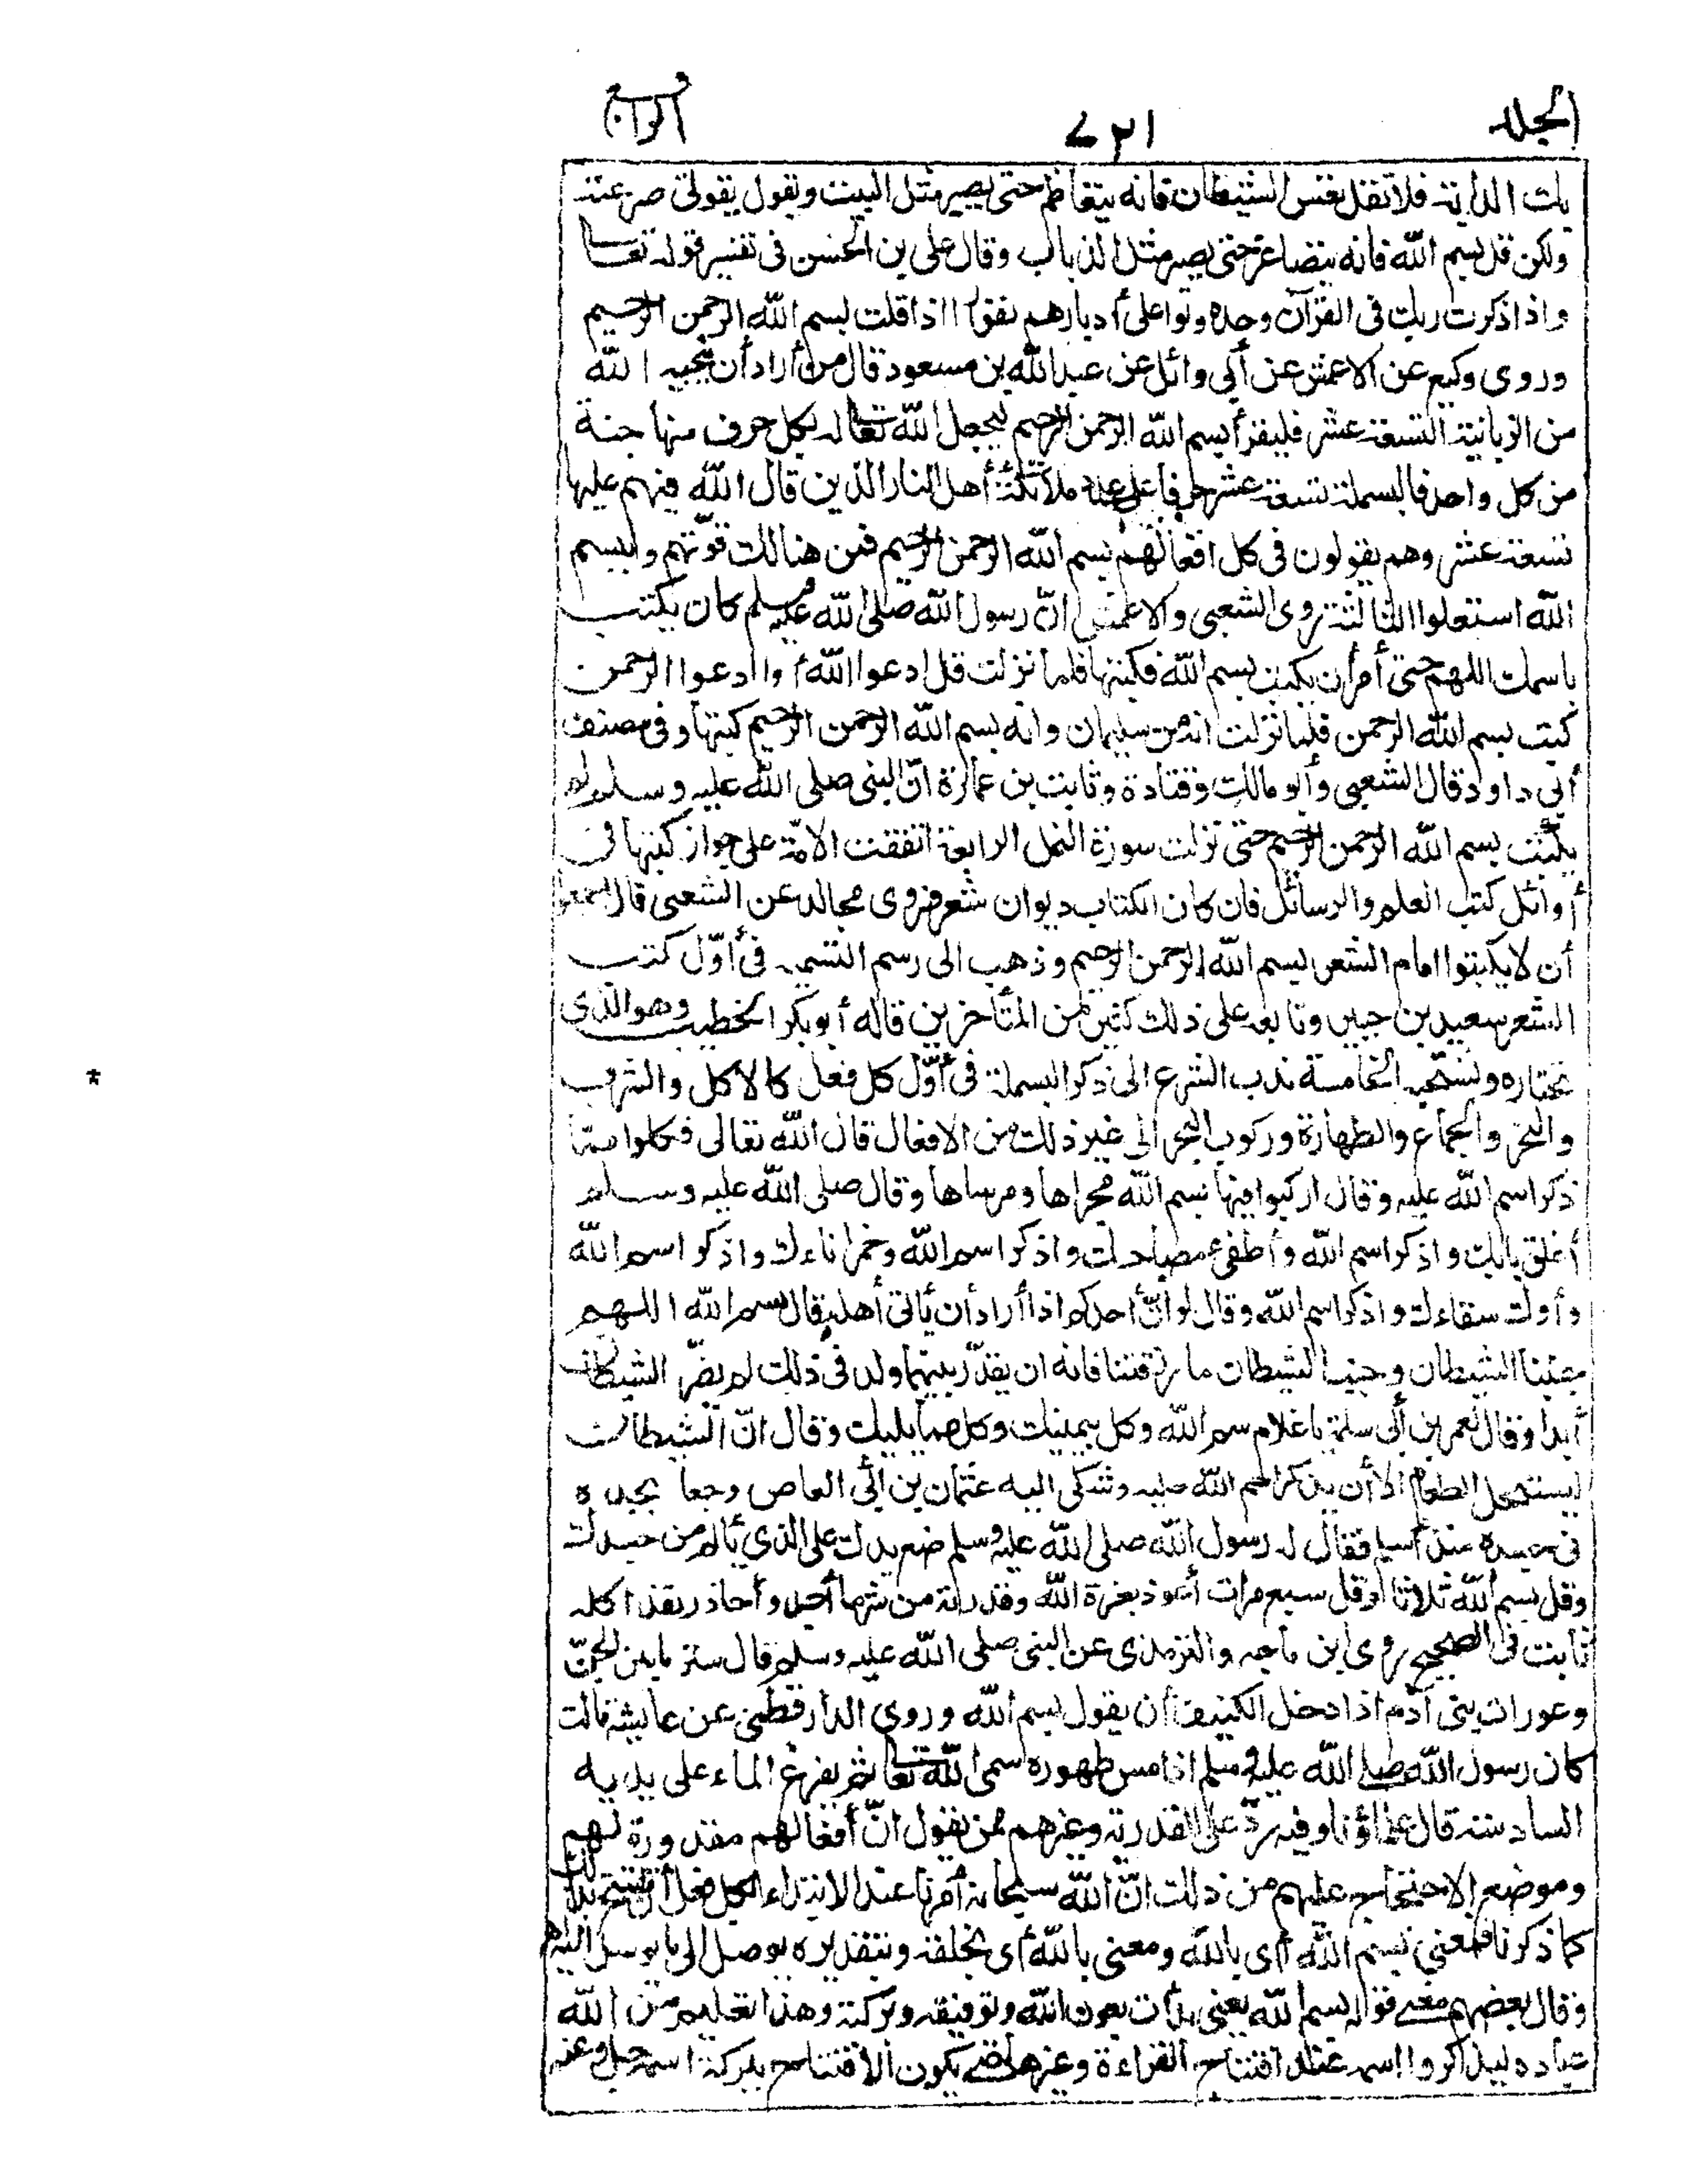 الجلد ٧٢١ الرابع
بك الدابة فلا تقل تعس الشيطان فانه يتعاظم حتى يصير مثل البيت ويقول بقوتى صرعته
ولكن قل بسم الله فانه يتصاغر حتى يصير مثل الذباب وقال على بن الحسين فى تفسير قوله تعالى
واذا ذكرت ربك فى القرآن وحده ولوا على أدبارهم نفورا اذا قلت بسم الله الرحمن الرحيم
وروى وكيع عن الاعمش عن أبى وائل عن عبد الله بن مسعود قال من أراد أن ينجيه الله
من الزبانية التسعة عشر فليقرأ بسم الله الرحمن الرحيم ليجعل الله تعالى له بكل حرف منها جنة
من كل واحد فالبسملة تسعة عشر حرفا على عدد ملائكة أهل النار الذين قال الله فيهم عليها
تسعة عشر وهم يقولون فى كل افعالهم بسم الله الرحمن الرحيم فمن هنالك قوتهم وببسم
الله استعلوا الثالثة روى الشعبى والاعمش انّ رسول الله صلى الله عليه وسلم كان يكتب
باسمك اللهم حتى أمر أن يكتب بسم الله فكتبها فلما نزلت قل ادعوا الله أو ادعوا الرحمن
كتب بسم الله الرحمن فلما نزلت انه من سليمان وانه بسم الله الرحمن الرحيم كتبها وفى مصنف
أبى داود قال الشعبى وأبو مالك وقتادة وثابت بن عمارة انّ النبى صلى الله عليه وسلم لم
يكتب بسم الله الرحمن الرحيم حتى نزلت سورة النمل الرابعة اتفقت الامّة على جواز كتبها فى
أوائل كتب العلم والرسائل فان كان الكتاب ديوان شعر فروى مجالد عن الشعبى قال أجمعوا
أن لا يكتبوا امام الشعر بسم الله الرحمن الرحيم وذهب الى رسم التسمية فى أوّل كتب
الشعر سعيد بن جبير وتابعه على ذلك كثير من المتأخرين قاله أبو بكر الخطيب وهو الذى
نختاره ونستحبه الخامسة ندب الشرع الى ذكر البسملة فى أوّل كل فعل كالاكل والشرب
والنحر والجماع والطهارة وركوب البحر الى غير ذلك من الافعال قال الله تعالى فكلوا ممّا
ذكر اسم الله عليه وقال اركبوا فيها بسم الله مجراها ومرساها وقال صلى الله عليه وسلم
أغلق بابك واذكر اسم الله وأطفئ مصباحك واذكر اسم الله وخمر اناءك واذكر اسم الله
وأوك سقاءك واذكر اسم الله وقال لو انّ أحدكم اذا أراد أن يأتى أهله قال بسم الله اللهم
جنبنا الشيطان وجنب الشيطان ما رزقتنا فانه ان يقدّر بينهما ولد فى ذلك لم يضرّه الشيطان
أبدا وقال لعمر بن أبى سلمة يا غلام سم الله وكل بيمينك وكل مما يليك وقال انّ الشيطان
ليستحل الطعام الا أن يذكر اسم الله عليه وشكى اليه عثمان بن أبى العاص وجعا يجده
فى جسده منذ أسلم فقال له رسول الله صلى الله عليه وسلم ضع يدك على الذى يألم من جسدك
وقل بسم الله ثلاثا وقل سبع مرات أعوذ بعزة الله وقدرته من شر ما أجد وأحاذر بعد اكله
ثابت فى الصحيح روى ابن ماجه والترمذى عن النبى صلى الله عليه وسلم قال ستر ما بين الجنّ
وعورات بنى آدم اذا دخل الكنيف أن يقول بسم الله وروى الدارقطنى عن عايشة قالت
كان رسول الله صلى الله عليه وسلم اذا مس طهوره سمى الله تعالى ثم يفرغ الماء على يديه
السادسة قال علماؤنا وفيه ردّ على القدرية وغيرهم ممن يقول انّ أفعالهم مقدورة لهم
وموضع الاحتجاج عليهم من ذلك انّ الله سبحانه أمرنا عند الابتداء لكل فعل أن نفتتح بذلك
كما ذكرنا فمعنى بسم الله أى بالله ومعنى بالله أى بخلقه وبتقديره يوصل الى ما يوصل اليه
وقال بعضهم معنى قوله بسم الله يعنى بدأت بعون الله وتوفيقه وبركته وهذا تعليم من الله
عباده ليذكروا اسمه عند افتتاح القراءة وغيرها حتى يكون الافتتاح ببركة اسمه جل وعز
*